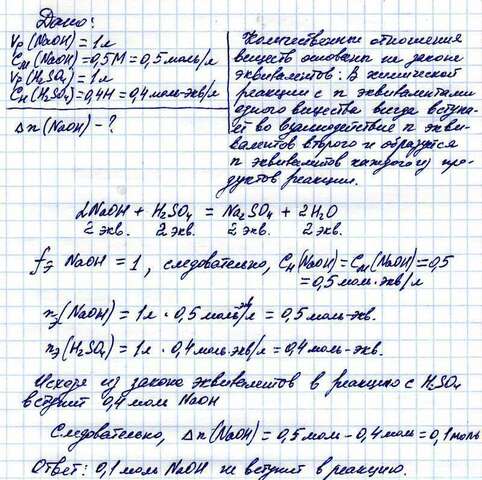 Дано:
Vр(NaOH) = 1л
Cм(NaOH) = 0,5М = 0,5 моль/л
Vр(H₂SO₄) = 1л
Cн(H₂SO₄) = 0,4Н = 0,4 моль-экв/л
Δn(NaOH) - ?
Количественные отношения
веществ основаны на законе
эквивалентов: В химической
реакции с n эквивалентами
одного вещества всегда вступа-
ет во взаимодействие n экви-
валентов второго и образуется
n эквивалентов каждого из про-
дуктов реакции.
2NaOH + H₂SO₄ = Na₂SO₄ + 2H₂O
2 экв. 2 экв. 2 экв. 2 экв.
fэ NaOH = 1, следовательно, Cн(NaOH) = Cм(NaOH) = 0,5
= 0,5 моль·экв/л
nэ(NaOH) = 1л · 0,5 моль-эк/л = 0,5 моль-экв.
nэ(H₂SO₄) = 1л · 0,4 моль·экв/л = 0,4 моль-экв.
Исходя из закона эквивалентов в реакцию с H₂SO₄
вступит 0,4 мол NaOH
Следовательно, Δn(NaOH) = 0,5 мол - 0,4 моль = 0,1 моль
Ответ: 0,1 моль NaOH не вступит в реакцию.